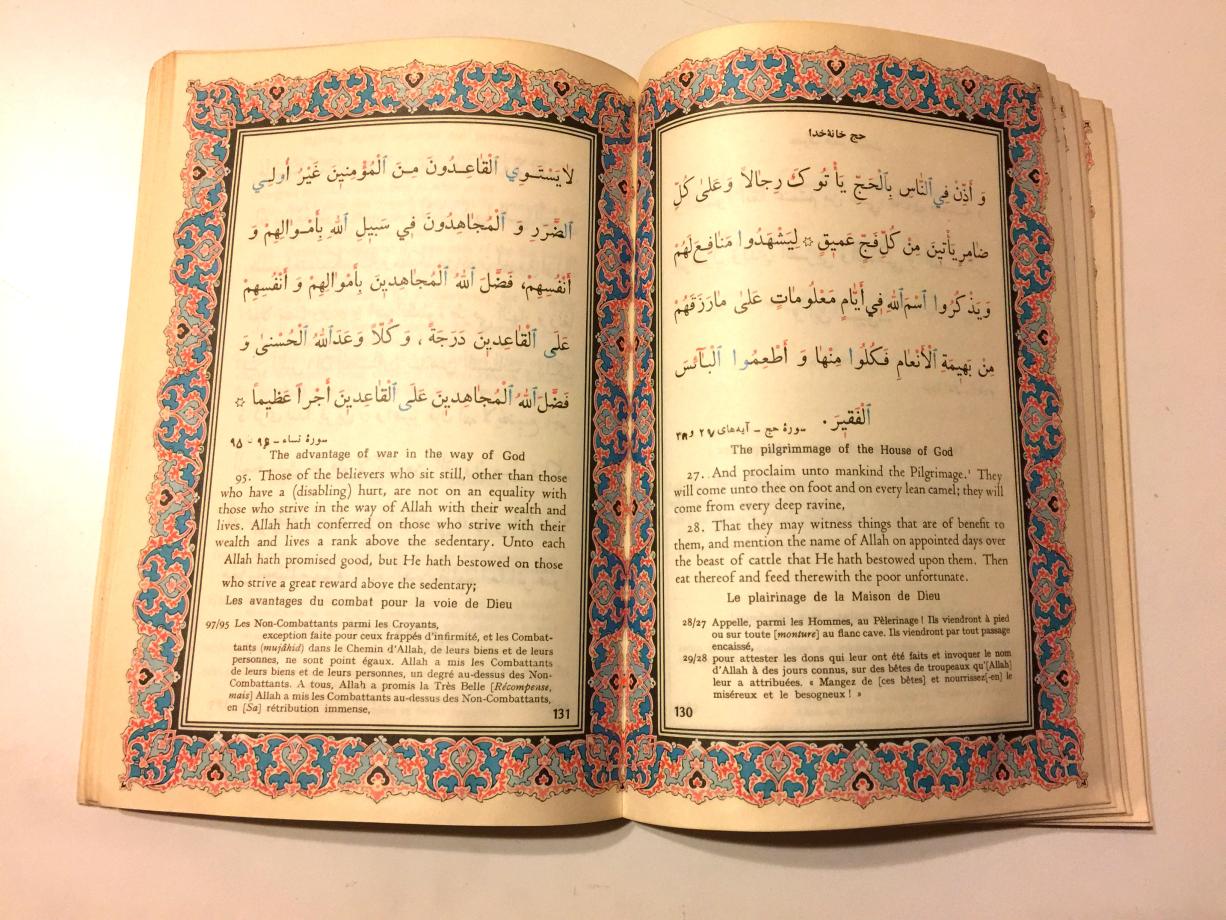 حج خانهٔ خدا
وَ أَذِّنْ فِي ٱلنّٰاسِ بِٱلْحَجِّ يَأْتُوكَ رِجٰالاً وَعَلىٰ كُلِّ
ضٰامِرٍ يَأْتينَ مِنْ كُلِّ فَجٍّ عَميقٍ ۞ لِيَشْهَدُوا مَنٰافِعَ لَهُمْ
وَيَذْكُرُوا ٱسْمَ ٱللّٰهِ فِي أَيّٰامٍ مَعْلُومٰاتٍ عَلىٰ مٰا رَزَقَهُمْ
مِنْ بَهيمَةِ ٱلْأَنْعٰامِ فَكُلُوا مِنْهٰا وَ أَطْعِمُوا ٱلْبٰآئِسَ
ٱلْفَقيرَ .
سورهٔ حج - آیه‌های ۲۷ و ۲۸
The pilgrimmage of the House of God
27. And proclaim unto mankind the Pilgrimage.¹ They
will come unto thee on foot and on every lean camel; they will
come from every deep ravine,
28. That they may witness things that are of benefit to
them, and mention the name of Allah on appointed days over
the beast of cattle that He hath bestowed upon them. Then
eat thereof and feed therewith the poor unfortunate.
Le plairinage de la Maison de Dieu
28/27 Appelle, parmi les Hommes, au Pèlerinage ! Ils viendront à pied
ou sur toute [monture] au flanc cave. Ils viendront par tout passage
encaissé,
29/28 pour attester les dons qui leur ont été faits et invoquer le nom
d'Allah à des jours connus, sur des bêtes de troupeaux qu'[Allah]
leur a attribuées. « Mangez de [ces bêtes] et nourrissez[-en] le
miséreux et le besogneux ! »
130
لاٰ يَسْتَــوِي ٱلْقٰاعِــدُونَ مِـنَ ٱلْمُؤْمِنينَ غَيْرُ أُولِــي
ٱلضَّرَرِ وَ ٱلْمُجٰاهِدُونَ فِي سَبيلِ ٱللّٰهِ بِأَمْـوٰالِهِمْ وَ
أَنْفُسِهِمْ، فَضَّلَ ٱللّٰهُ ٱلْمُجٰاهِدينَ بِأَمْوٰالِهِمْ وَ أَنْفُسِهِمْ
عَلَى ٱلْقٰاعِدينَ دَرَجَةً ، وَ كُلّاً وَعَدَ ٱللّٰهُ ٱلْحُسْنىٰ وَ
فَضَّلَ ٱللّٰهُ ٱلْمُجٰاهِدينَ عَلَى ٱلْقٰاعِدينَ أَجْراً عَظيماً ۞
سورهٔ نساء - ۹۶ - ۹۵
The advantage of war in the way of God
95. Those of the believers who sit still, other than those
who have a (disabling) hurt, are not on an equality with
those who strive in the way of Allah with their wealth and
lives. Allah hath conferred on those who strive with their
wealth and lives a rank above the sedentary. Unto each
Allah hath promised good, but He hath bestowed on those
who strive a great reward above the sedentary;
Les avantages du combat pour la voie de Dieu
97/95 Les Non-Combattants parmi les Croyants,
exception faite pour ceux frappés d'infirmité, et les Combat-
tants (mujâhid) dans le Chemin d'Allah, de leurs biens et de leurs
personnes, ne sont point égaux. Allah a mis les Combattants
de leurs biens et de leurs personnes, un degré au-dessus des Non-
Combattants. A tous, Allah a promis la Très Belle [Récompense,
mais] Allah a mis les Combattants au-dessus des Non-Combattants,
en [Sa] rétribution immense,
131